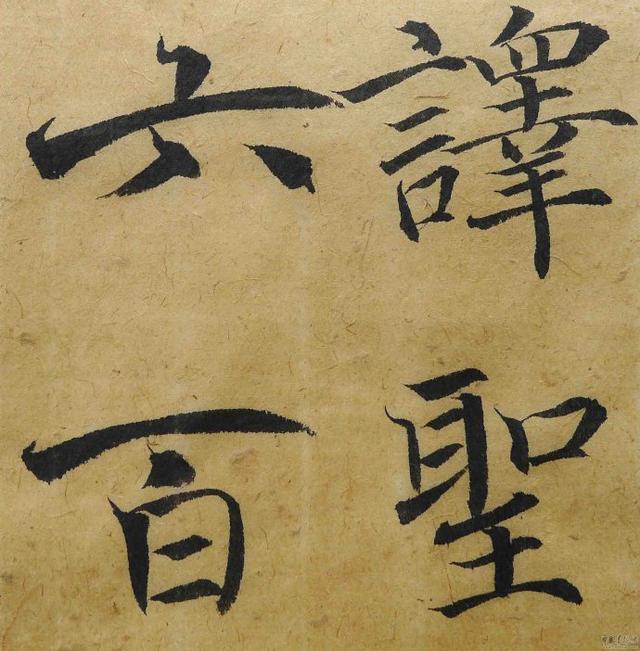 譯聖
六百